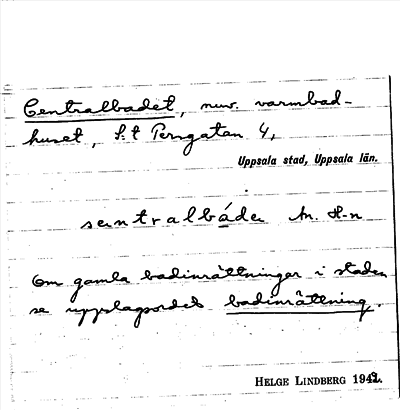 Centralbadet, nuv. varmbad-
huset, S:t Persgatan 4,
Uppsala stad, Uppsala län.
sentralbáde m. H-n
Om gamla badinrättningar i staden
se uppslagsordet badinrättning.
HELGE LINDBERG 1942.